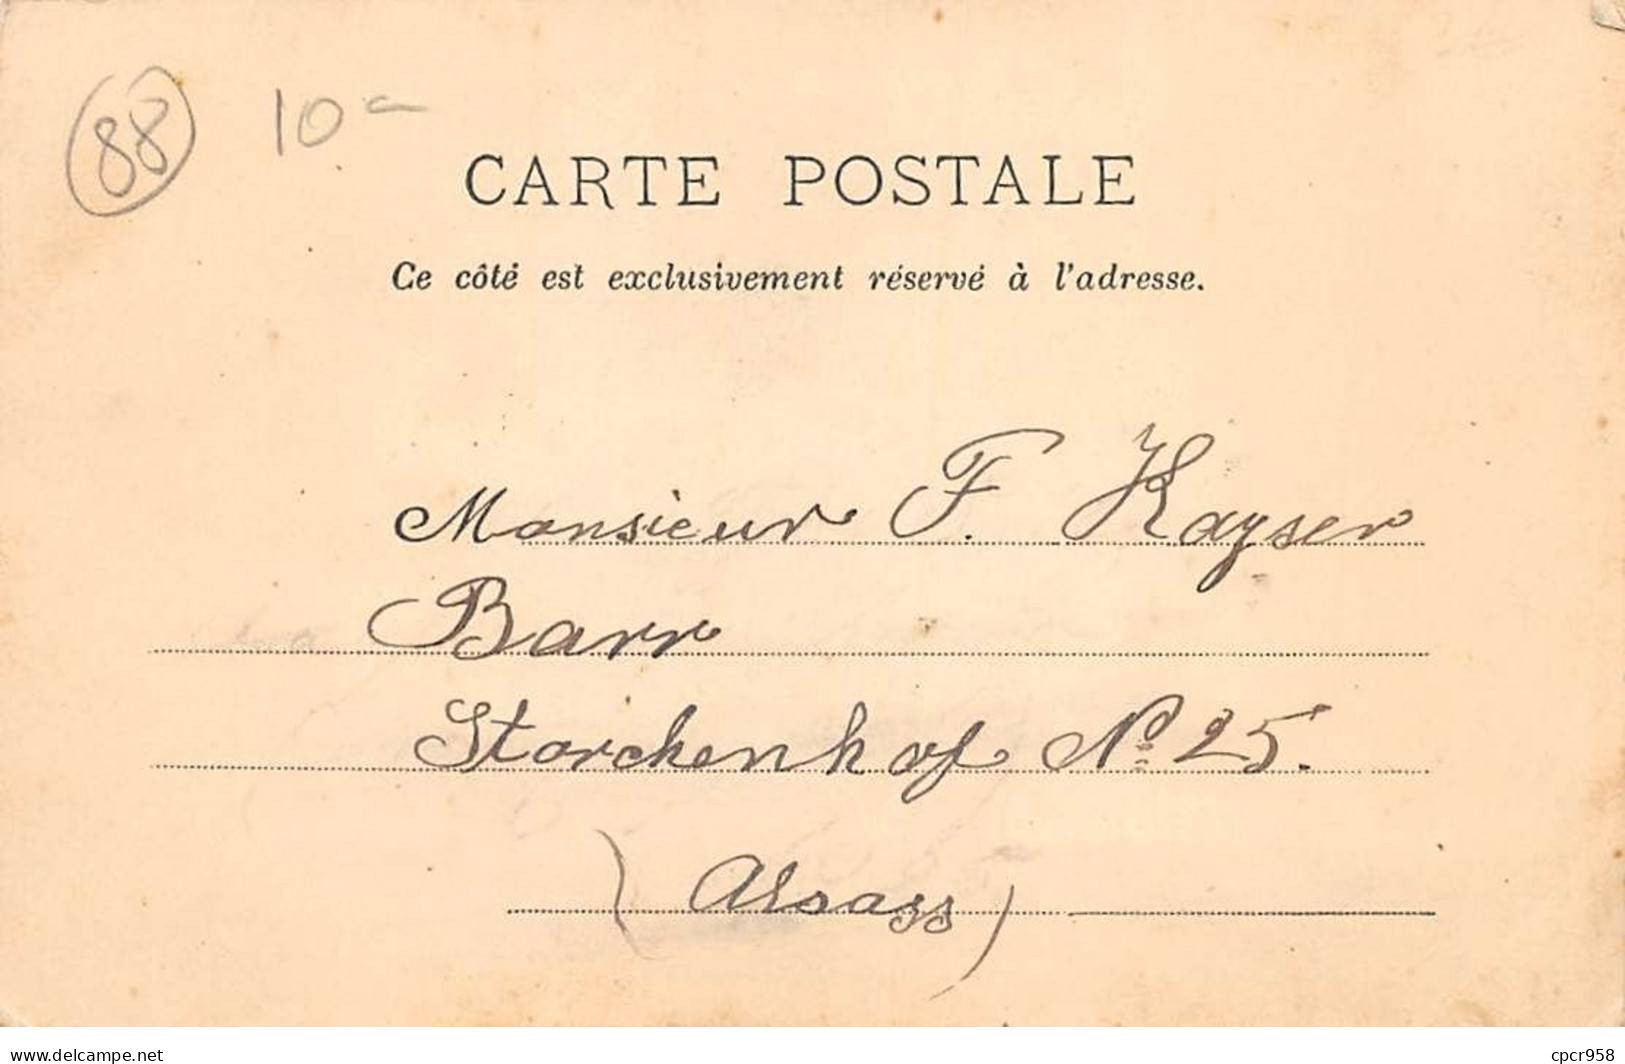 88 10
CARTE POSTALE
Ce côté est exclusivement réservé à l'adresse.
Monsieur F. Kayser
Barr
Storchenhof No 25.
(Alsass)
www.delcampe.net cpcr958